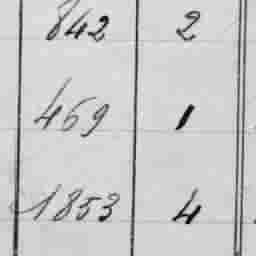 842 2
469 1
1853 4